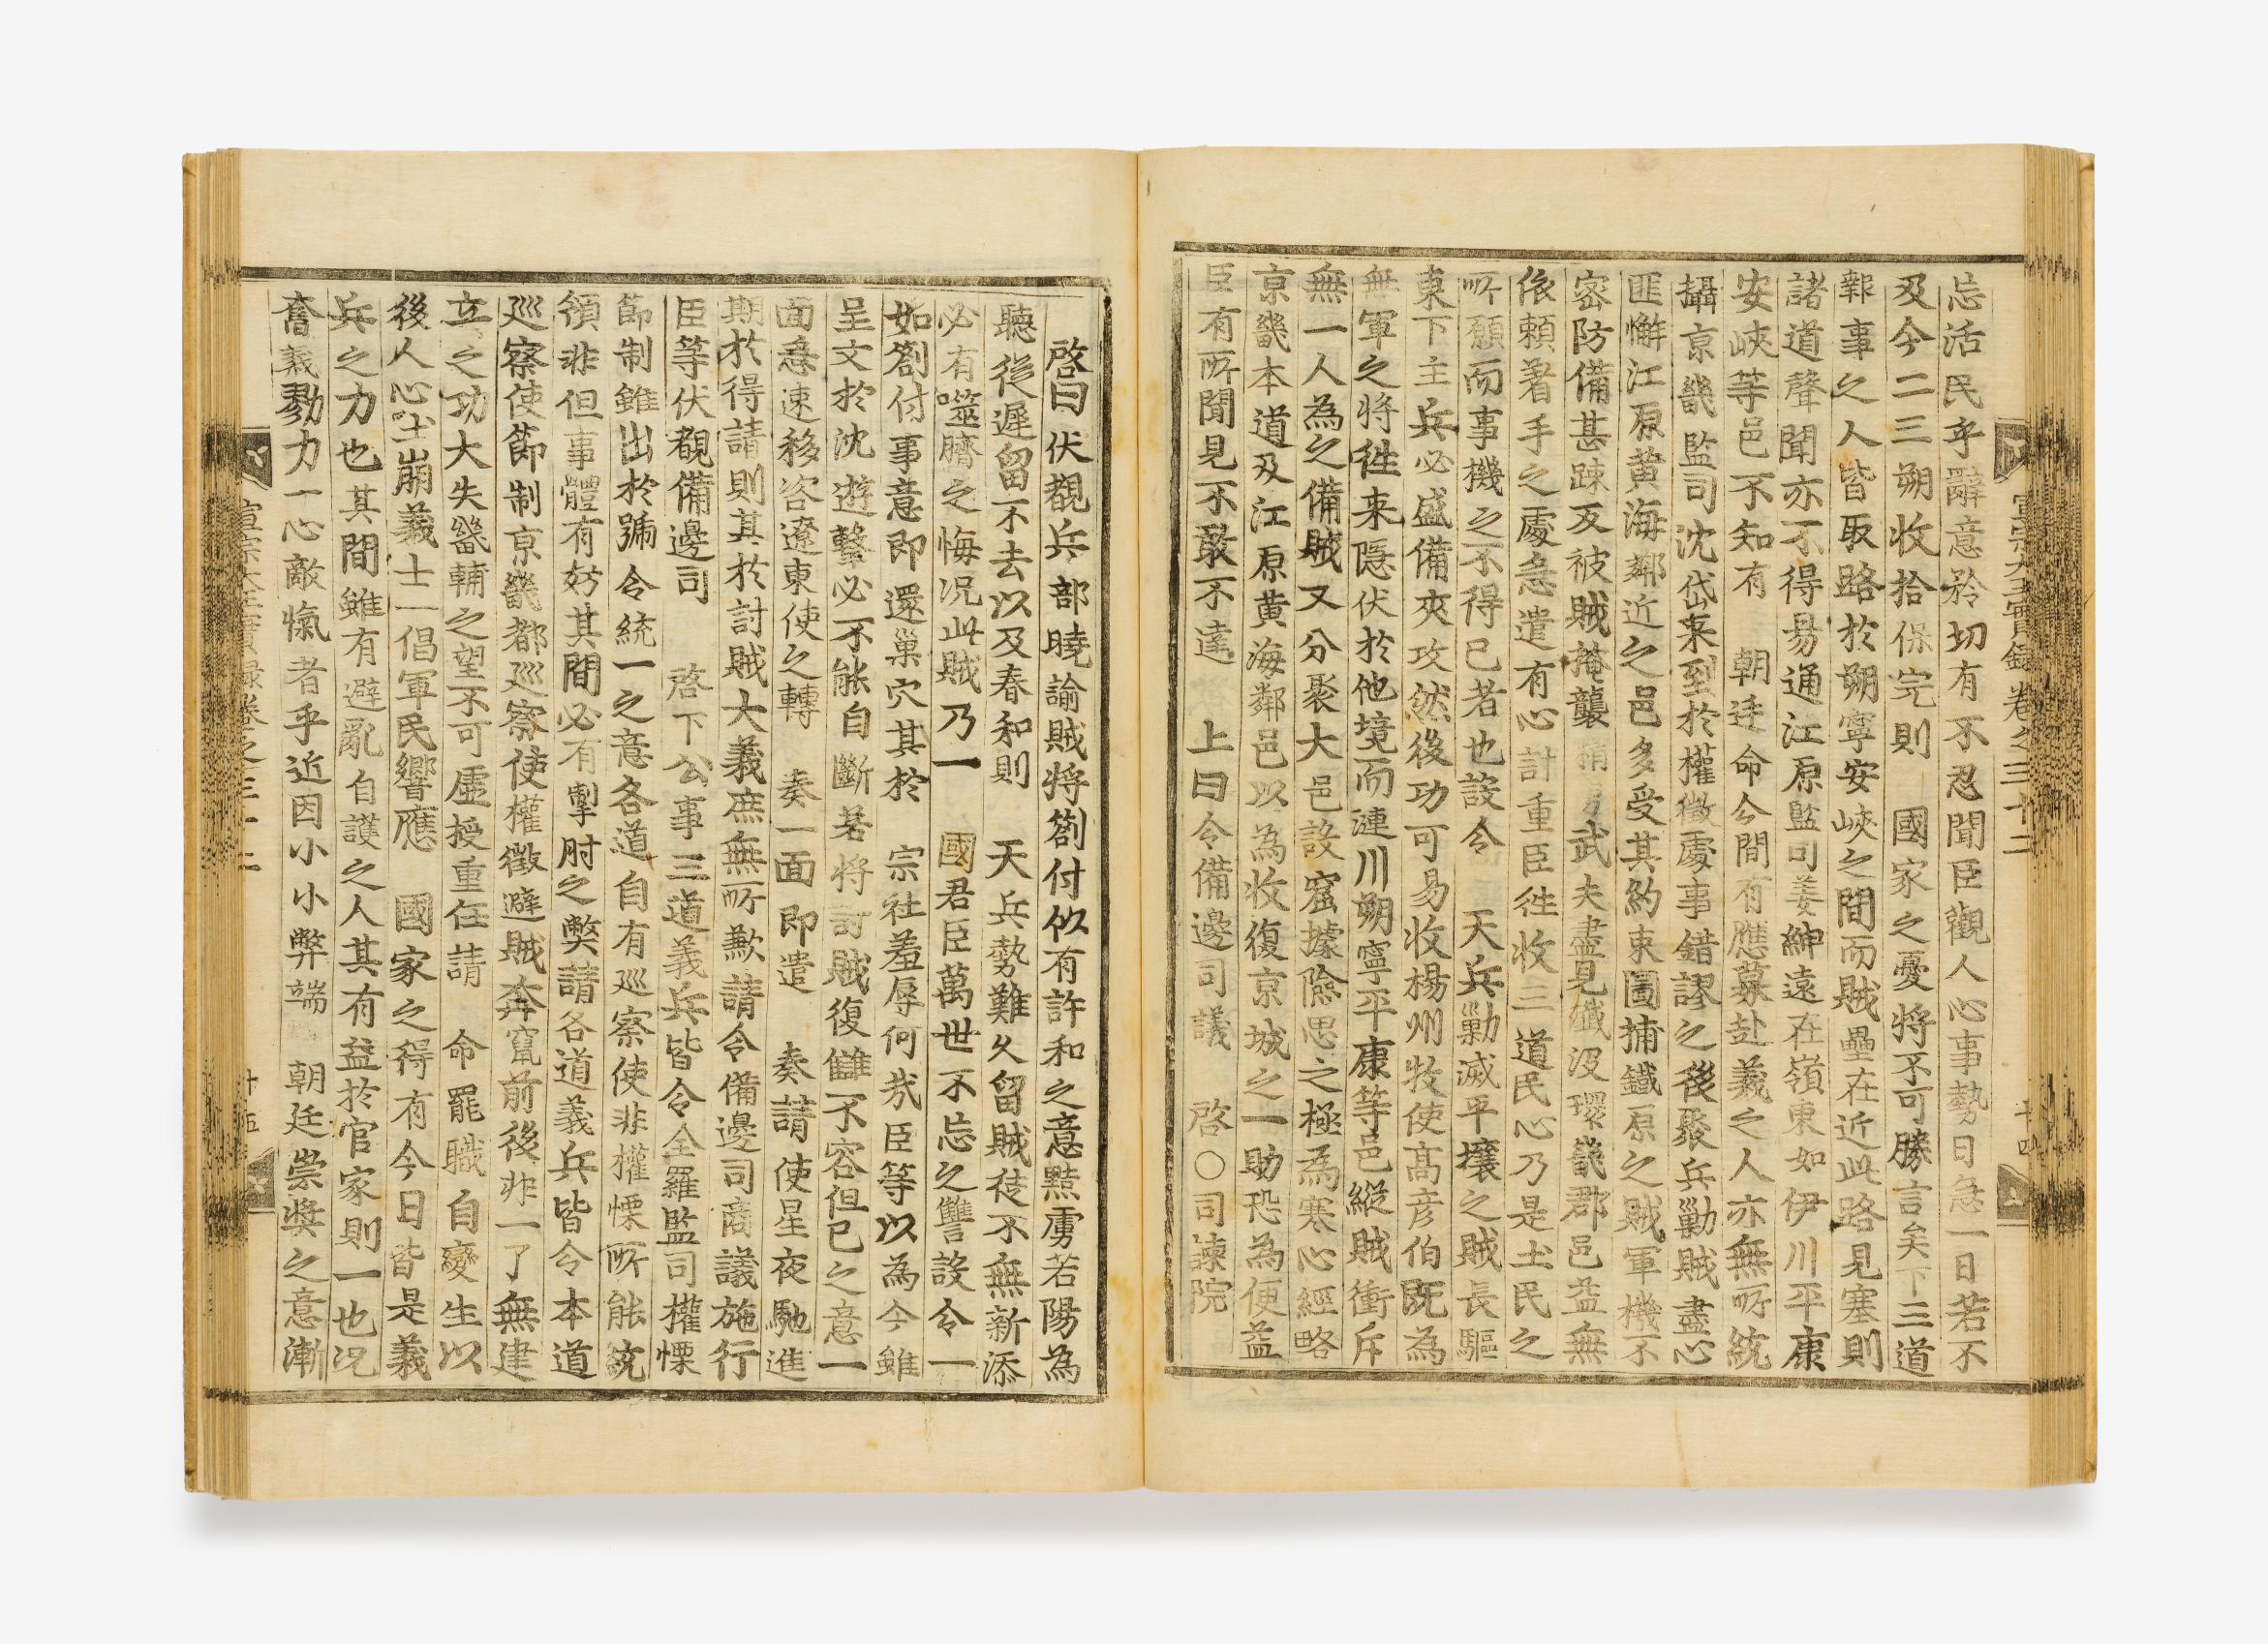 宣宗大王實錄卷之三十二
十四
忘活民乎辭意矜切有不忍聞臣觀人心事勢日急一日若不
及今二三朔收拾保完則 國家之憂將不可勝言矣下三道
報事之人皆取路於朔寧安峽之間而賊壘在近此路見塞則
諸道聲聞亦不得易通江原監司姜紳遠在嶺東如伊川平康
安峽等邑不知有 朝廷命令間有應募赴義之人亦無所統
攝京畿監司沈岱來到於權徵處事錯謬之後聚兵勦賊盡心
匪懈江原黃海鄰近之邑多受其約束圖捕鐵原之賊軍機不
密防備甚踈反被賊掩襲精勇武夫盡見殲沒環畿郡邑益無
依賴着手之處急遣有心計重臣往收三道民心乃是士民之
所願而事機之不得已者也設令 天兵勦滅平壤之賊長驅
東下主兵必盛備夾攻然後功可易收楊州牧使高彦伯既爲
無軍之將徃來隱伏於他境而漣川朔寧平康等邑縱賊衝斥
無一人爲之備賊又分聚大邑設窟據險思之極爲寒心經略
京畿本道及江原黃海鄰邑以爲收復京城之一助恐爲便益
臣有所聞見不敢不達 上曰令備邊司議 啓○司諫院
啓曰伏覩兵部曉諭賊將箚付似有許和之意黠虜若陽爲
聽從遲留不去以及春和則 天兵勢難久留賊徒不無新添
必有噬臍之悔况此賊乃一 國君臣萬世不忘之讐設令一
如箚付事意即還巢穴其於 宗社羞辱何哉臣等以爲今雖
呈文於沈遊擊必不能自斷若將討賊復讎不容但已之意一
面急速移咨遼東使之轉 奏一面即遣 奏請使星夜馳進
期於得請則其於討賊大義庶無所歉請令備邊司商議施行
臣等伏覩備邊司 啓下公事三道義兵皆令全羅監司權慄
節制雖出於號令統一之意各道自有巡察使非權慄所能統
領非但事體有妨其間必有掣肘之弊請各道義兵皆令本道
巡察使節制京畿都巡察使權徵避賊奔竄前後非一了無建
立之功大失畿輔之望不可虛授重任請 命罷職自變生以
後人心土崩義士一倡軍民響應 國家之得有今日皆是義
兵之力也其間雖有避亂自護之人其有益於官家則一也况
奮義勠力一心敵愾者乎近因小小弊端 朝廷崇奬之意漸
宣宗大王實錄卷之三十二
十五